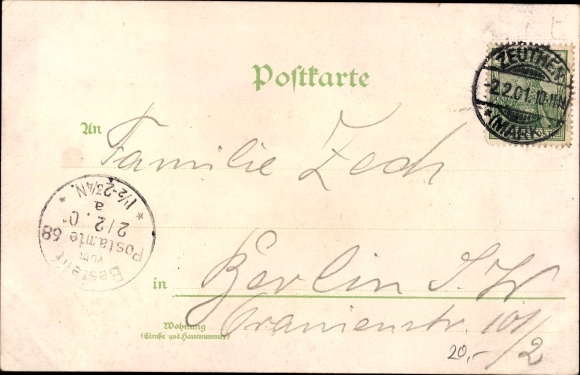 Postkarte
ZEUTHEN
2.2.01.10-11V
* (MARK)
An
Familie Zech
Bestellt
vom
Postamte 68
2/2.01
a
1½-2¾N.
in Berlin S.W
Wohnung
(Straße und Hausnummer)
Oranienstr. 101/2
20,-